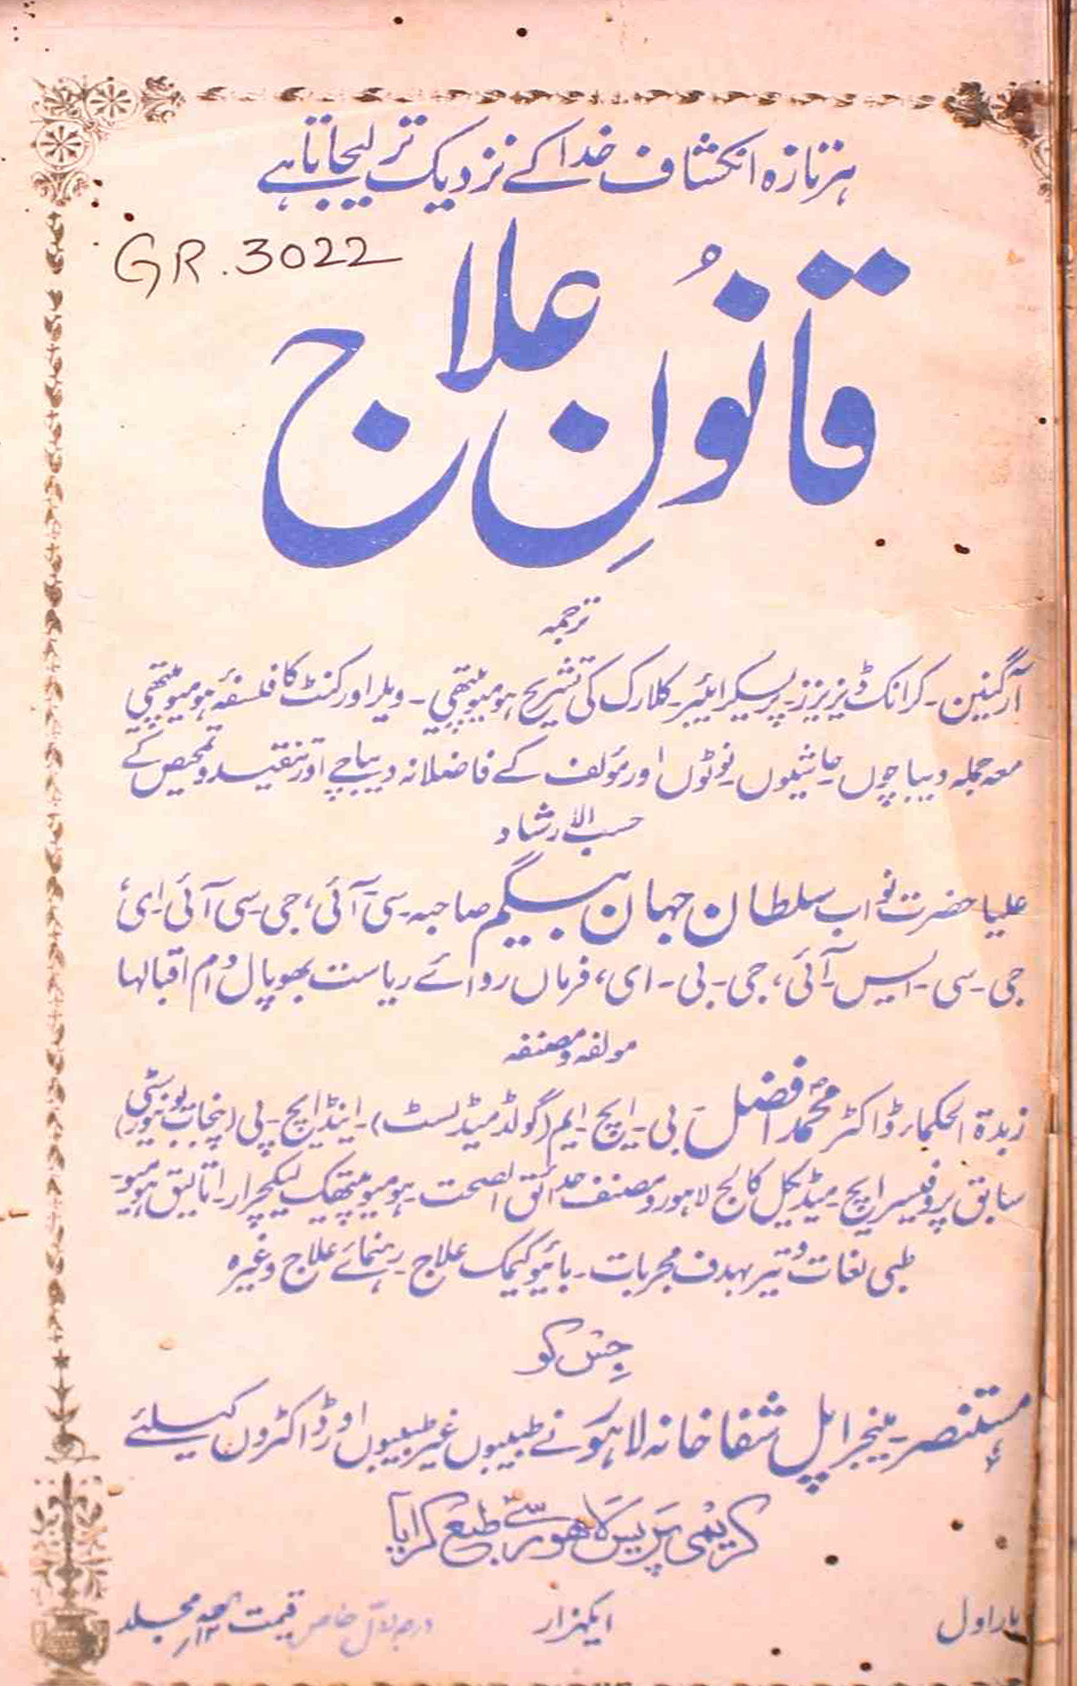 ہر تازہ انکشاف خدا کے نزدیک تر لیجاتا ہے
GR. 3022
قانونِ علاج
ترجمہ
آرگنین۔ کرانک ڈیزیزز۔ پرسکرائیبر۔ کلارک کی تشریح ہومیوپیتھی۔ ویلر اور کنٹ کا فلسفۂ ہومیوپیتھی
معہ جملہ دیباچوں۔ حاشیوں۔ نوٹوں اور مؤلف کے فاضلانہ دیباچے اور تنقید و تمحیص کے
حسب الارشاد
علیا حضرت نواب سلطان جہان بیگم صاحبہ۔ سی۔ آئی، جی۔ سی۔ آئی۔ ای،
جی۔ سی۔ ایس۔ آئی، جی۔ بی۔ ای، فرماں روائے ریاست بھوپال دام اقبالہا
مولفہ و مصنفہ
زبدۃ الحکماء ڈاکٹر محمد افضل بی۔ ایچ۔ ایم (گولڈ میڈلسٹ)۔ اینڈ ایچ۔ پی (پنجاب یونیورسٹی)
سابق پروفیسر ایچ۔ میڈیکل کالج لاہور و مصنف حدائق الصحت۔ ہومیوپیتھک لیکچرار۔ اتالیق ہومیو۔
طبی لغات و تیر بہدف مجربات۔ بائیوکیمک علاج۔ رہنمائے علاج وغیرہ
جس کو
مستنصر۔ مینجر اپل شفاخانہ لاہور نے طبیبوں غیر طبیبوں اور ڈاکٹروں کیلئے
کریمی پریس لاہور سے طبع کرایا
بار اول ایکہزار درجہ اول خاص قیمت مجلد